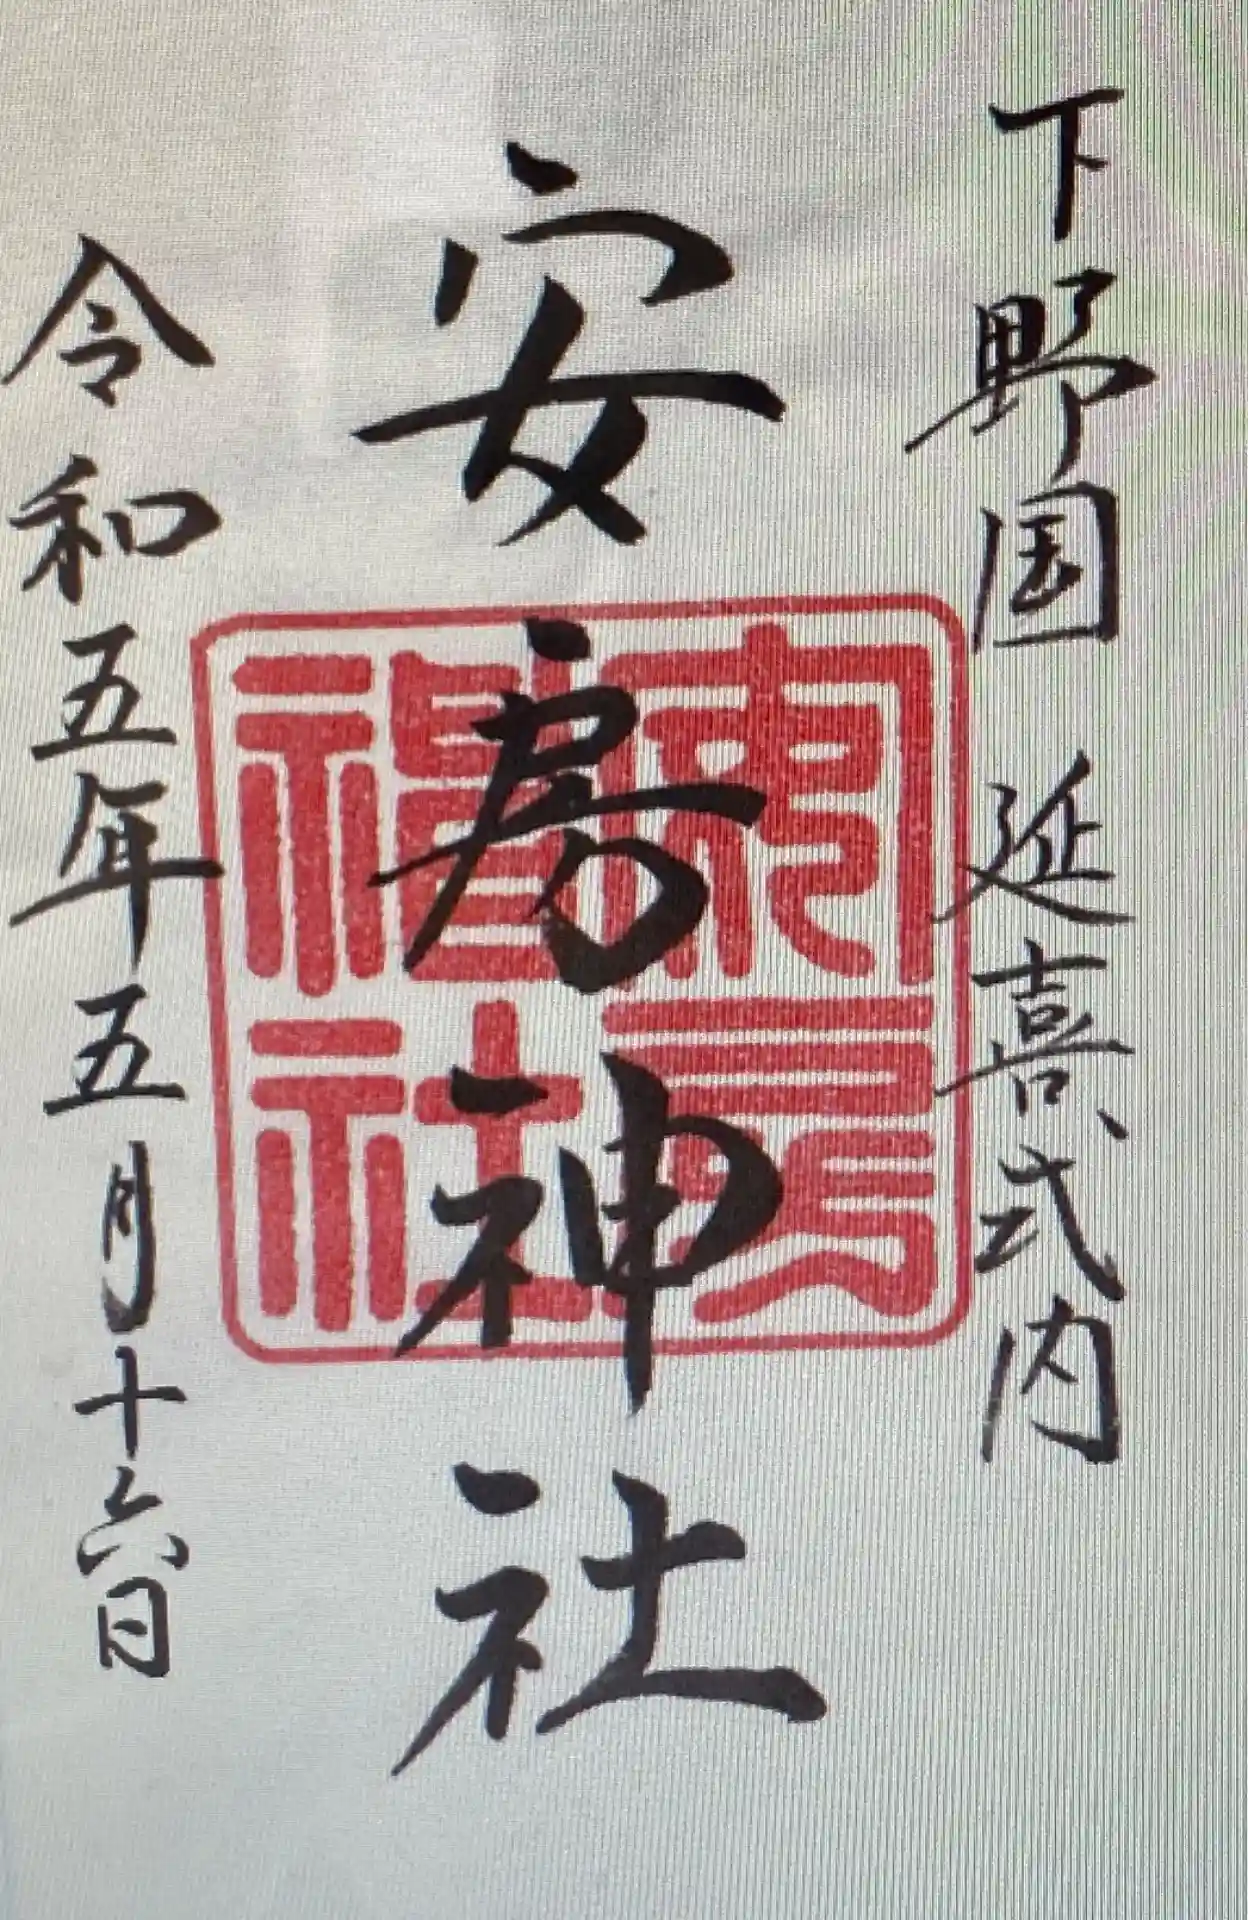 下野国 延喜式内
安房神社
令和五年五月十六日
安房神社